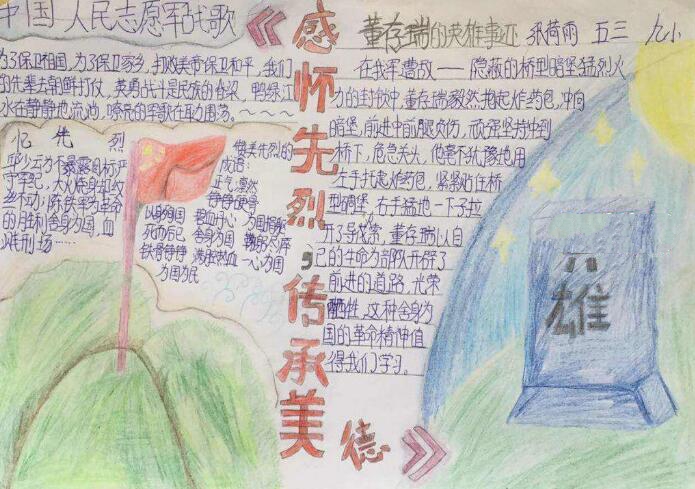 中国人民志愿军战歌
为了保卫祖国,为了保卫家乡,打败美帝保卫和平,我们
的先辈去朝鲜打仗,英勇战斗是民族的脊梁,鸭绿江
水在静静地流淌,嘹亮的军歌在耳回荡。~~~~
忆先烈
邱少云为不暴露目标严
守军纪,大火烧身却纹
丝不动;陈铁军为革命
的胜利舍身为国,血
洒刑场……
缅美先烈的
成语:
正气凛然
铮铮铁骨
以身殉国 碧血丹心 为国捐躯
死而后已 舍身为国 鞠躬尽瘁
铁骨铮铮 满腔热血 一心为国
为国为民
《感怀先烈,传承美德》
董存瑞的英雄事迹 张荷雨 五三 九小
在我军遭敌——隐蔽的桥型暗堡猛烈火
力的封锁中,董存瑞毅然抱起炸药包,冲向
暗堡,前进中前腿负伤,顽强坚持冲到
桥下,危急关头,他毫不犹豫地用
左手托起炸药包,紧紧贴住桥
型碉堡,右手猛地一下子拉
开了导火索,董存瑞以自
己的生命为部队开辟了
前进的道路,光荣
牺牲,这种舍身为
国的革命精神值
得我们学习。
英
雄